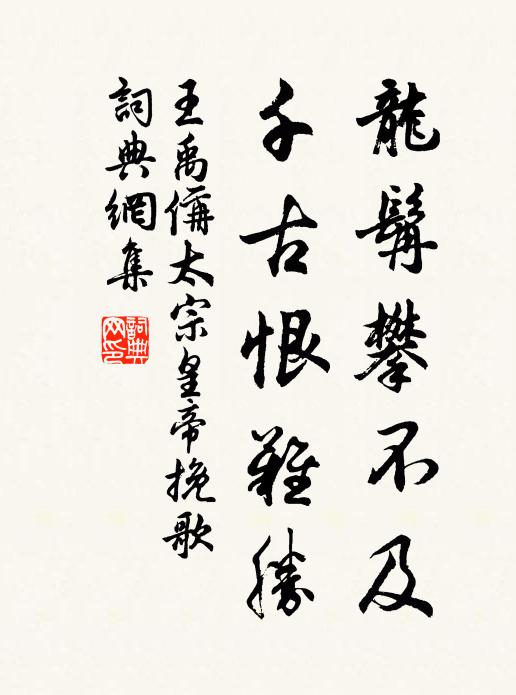 龍髯攀不及
千古恨難勝
王禹偁太宗皇帝挽歌
詞典網集
詞典
网印